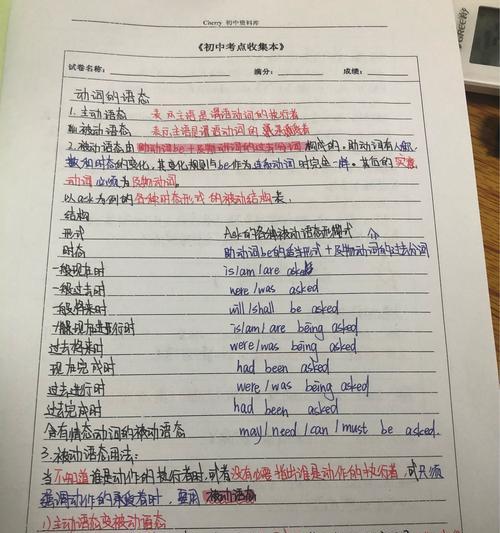 Cherry 初中资料库
《初中考点收集本》
试卷名称: 满分: 成绩:
动词的语态
1. 主动语态 表示主语是谓语动词的执行者
被动语态 表示主语是谓语动词的承受者
2. 被动语态由助动词be+及物动词的过去分词构成的。助动词有人称、
数和时态的变化，其变化规则与be作为连系动词时完全一样。其后的实意
动词必须为及物动词。
以ask为例的各种时态形式的被动结构表。
结构
形式 Ask的各种被动语态形式
时态 助动词be的适当形式+及物动词的过去分词
一般现在时 is/am/are asked
一般过去时 were/was asked
一般将来时 will/shall be asked
现在进行时 is/am/are being asked
过去将来时 were/was being asked
现在完成时 had been asked
过去进行时 were/was being asked
过去完成时 had been asked
含有情态动词的被动语态 may/need/can/must be asked.
3. 被动语态用法:
当不知道谁是动作的执行者时,或者没有必要指出谁是动作的执行者,或只须
强调动作的承受者时，要用被动语态
1)主动语态变被动语态